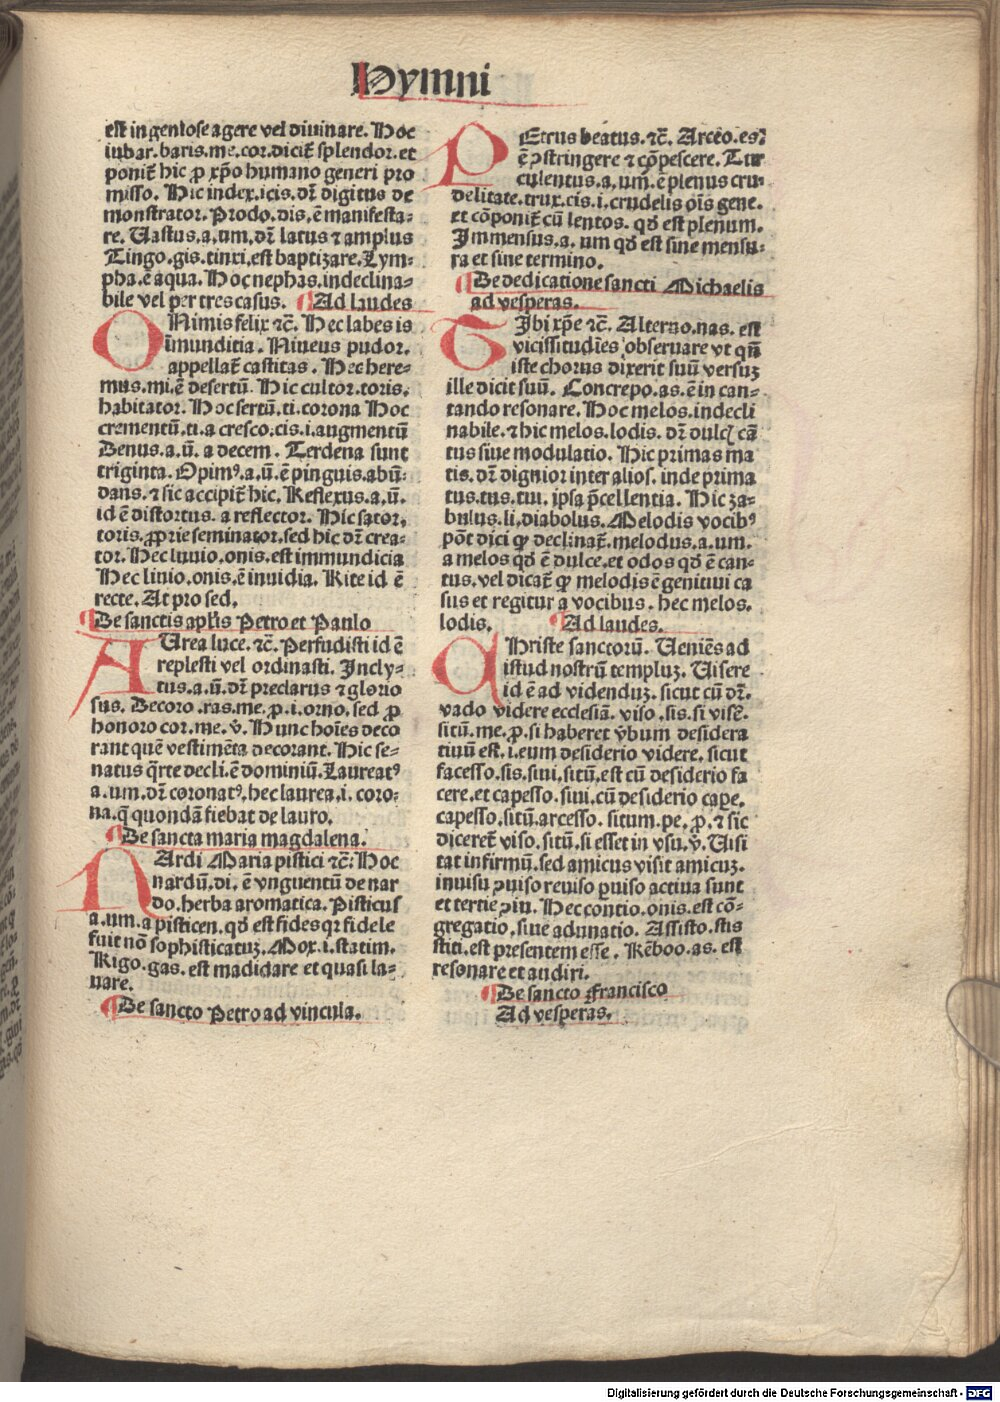 Hymni
est ingeniose agere vel diuinare. Hoc
iubar. baris. me. cor. dicit̃ splendor. et
ponit̃ hic ꝓ xp̃o humano generi pro
misso. Hic index. icis. dr̃ digitus de
monstrator. Prodo. dis. ẽ manifesta⸗
re. Uastus. a. um. dr̃ latus ⁊ amplus
Tingo. gis. tinxi. est baptizare. Lym⸗
pha. ẽ aqua. Hoc nephas. indeclina⸗
bile vel per tres casus. ¶ Ad laudes
O Nimis felix ⁊c̃. Hec labes is
ĩmunditia. Niueus pudor.
appellat̃ castitas. Hec here⸗
mus. mi. ẽ desertũ. Hic cultor. toris.
habitator. Hoc sertũ. ti. corona Hoc
crementũ. ti. a cresco. cis. i. augmentũ
Denus. a. ũ. a decem. Terdena sunt
triginta. Opimꝰ. a. ũ. ẽ pinguis. abũ⸗
dans. ⁊ sic accipit̃ hic. Reflexus. a. ũ.
id ẽ distortus. a reflector. Hic sator.
toris. ꝓprie seminator. sed hic dr̃ crea⸗
tor. Hec luuio. onis. est immundicia
Hec liuio. onis. ẽ inuidia. Rite id ẽ
recte. At pro sed.
¶ De sanctis apl̃is Petro et Paulo
AUrea luce. ⁊c̃. Perfudisti id ẽ
replesti vel ordinasti. Incly⸗
tus. a. ũ. dr̃ preclarus ⁊ glorio
sus. Decoro. ras. me. ꝓ. i. orno. sed ꝓ
honoro cor. me. v̾. Hunc hoĩes deco
rant quẽ vestimẽta decorant. Hic se⸗
natus q̃rte decli. ẽ dominiũ. Laureatꝰ
a. um. dr̃ coronatꝰ. hec laurea. i. coro⸗
na. q̃ quondã fiebat de lauro.
¶ De sancta maria magdalena.
NArdi Maria pistici ⁊c̃: Hoc
nardũ. di. ẽ vnguentũ de nar
do. herba aromatica. Pisticus
a. um. a pisticen. qđ est fides qr̃ fidele
fuit nõ sophisticatuꝫ. Mox. i. statim.
Rigo. gas. est madidare et quasi la⸗
uare.
¶ De sancto Petro ad vincula.
PEtrus beatus. ⁊c̃. Arceo. es.
ẽ ꝯstringere ⁊ cõpescere. Tur
culentus. a. um. ẽ plenus cru⸗
delitate. trux. cis. i. crudelis oĩs gene.
et cõponit̃ cũ lentos. qđ est plenum.
Immensus. a. um qđ est sine mensu⸗
ra et sine termino.
¶ De dedicatione sancti Michaelis
ad vesperas.
TIbi xp̃e ⁊c̃. Alterno. nas. est
vicissitudĩes obseruare vt qñ
iste chorus dixerit suũ versuꝫ
ille dicit suũ. Concrepo. as. ẽ in can⸗
tando resonare. Hoc melos. indecli
nabile. ⁊ hic melos. lodis. dr̃ dulcꝭ cã
tus siue modulatio. Hic primas ma
tis. dr̃ dignior inter alios. inde prima
tus. tus. tui. ipsa p̃cellentia. Hic za⸗
bulus. li. diabolus. Melodis vocibꝰ
põt dici ꝙ declinat̃. melodus. a. um.
a melos qđ ẽ dulce. et odos qđ ẽ can⸗
tus. vel dicat̃ ꝙ melodis ẽ genitiui ca
sus et regitur a vocibus. hec melos.
lodis. ¶ Ad laudes.
CHriste sanctorũ. Ueniẽs ad
istud nostrũ templuꝫ. Uisere
id ẽ ad videnduꝫ. sicut cũ dr̃.
vado videre ecclesiã. viso. sis. si visẽ.
situ᷑. me. ꝓ. si haberet v̾bum desidera
tiuũ est. i. eum desiderio videre. sicut
facesso. sis. siui. sitũ. est cũ desiderio fa
cere. et capesso. siui. cũ desiderio cape.
capesso. sitũ. arcesso. situm. pe. ꝓ. ⁊ sic
diceret̃ viso. sitũ. si esset in vsu. v̾. Uisi
tat infirmũ. sed amicus visit amicuꝫ.
inuisu ꝓuiso reuiso ꝑuiso actiua sunt
et tertie ꝯiu. Hec contio. onis. est cõ⸗
gregatio. siue adunatio. Assisto. stis
stiti. est presentem esse. Reboo. as. est
resonare et audiri.
¶ De sancto Francisco
Ad vesperas.
Digitalisierung gefördert durch die Deutsche Forschungsgemeinschaft - DFG